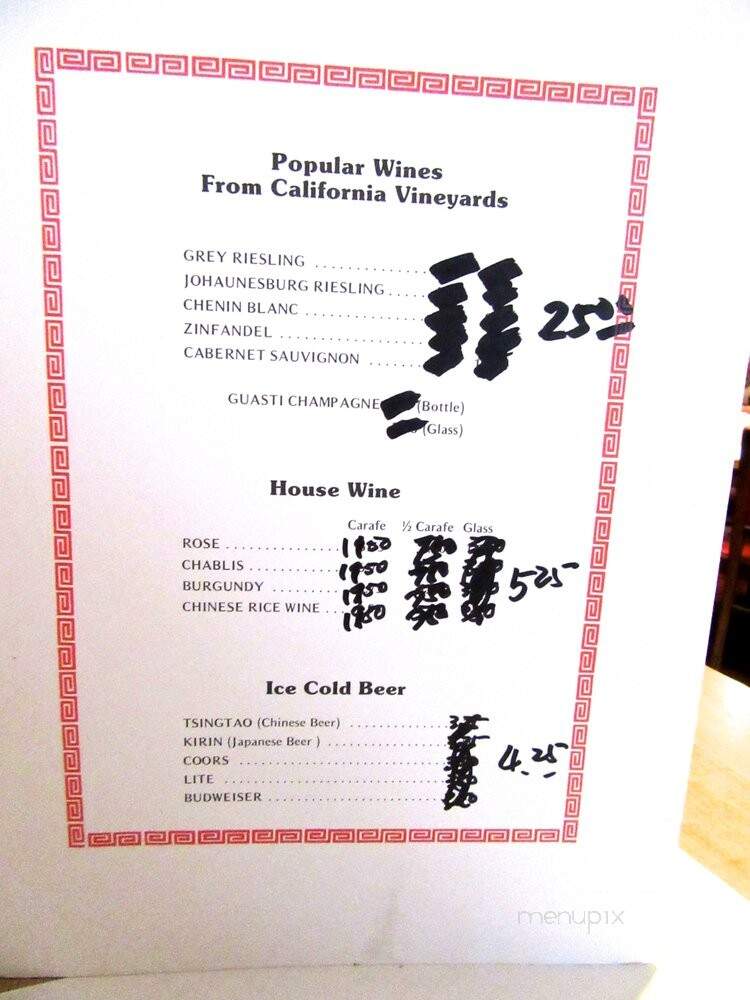 Popular Wines
From California Vineyards
GREY RIESLING ..............
JOHAUNESBURG RIESLING .....
CHENIN BLANC ................
ZINFANDEL ...................
CABERNET SAUVIGNON ......
25⁰⁰
GUASTI CHAMPAGNE (Bottle)
(Glass)
House Wine
Carafe ½ Carafe Glass
ROSE ...............
CHABLIS ............
BURGUNDY .........
CHINESE RICE WINE ...
5 25
Ice Cold Beer
TSINGTAO (Chinese Beer) ................
KIRIN (Japanese Beer ) ...................
COORS ..................................
LITE ....................................
BUDWEISER .............................
4.25
menupix